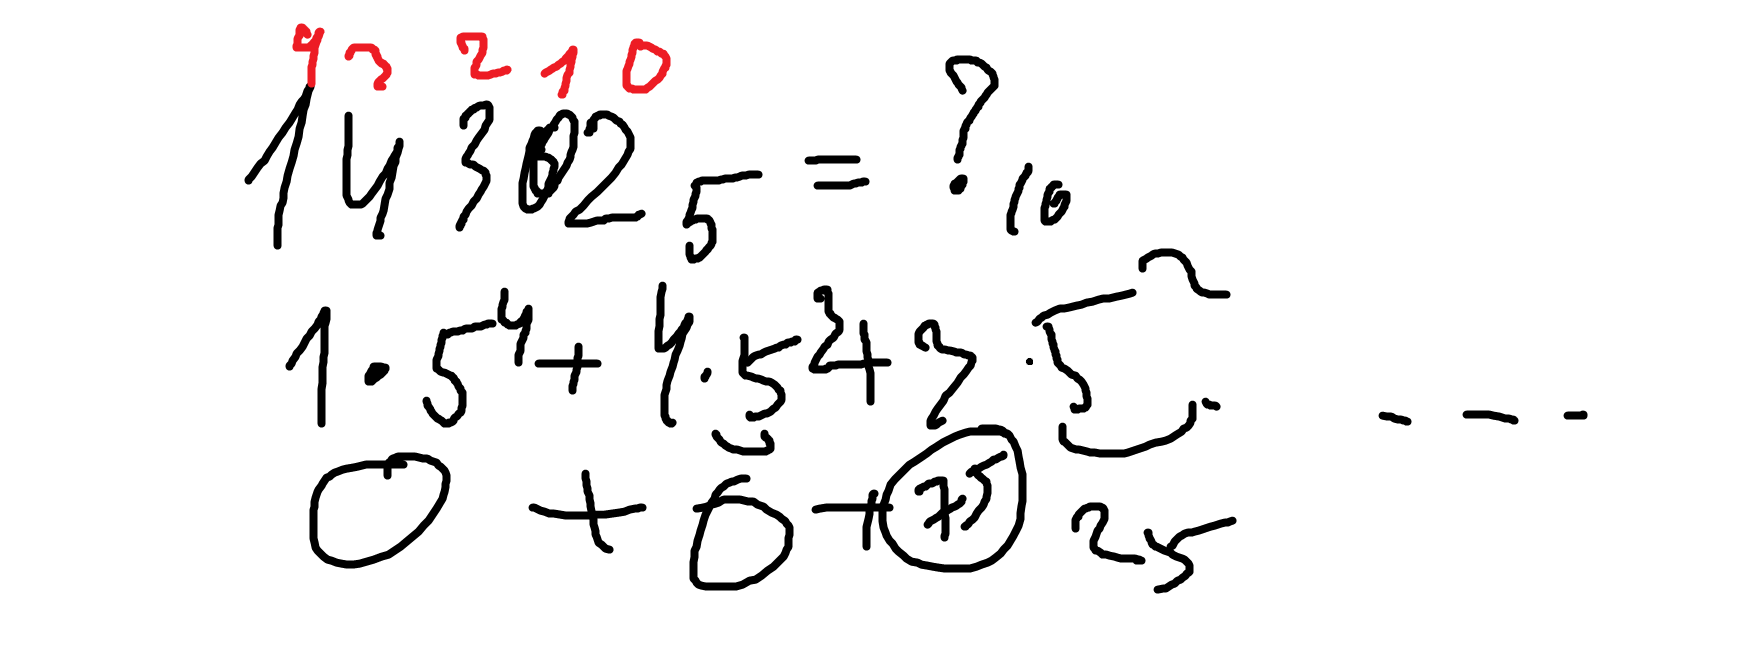 4 3 2 1 0
14302₅ = ?₁₀
1 · 5⁴ + 4 · 5³ + 3 · 5² · - - -
0 + 0 + 75 25